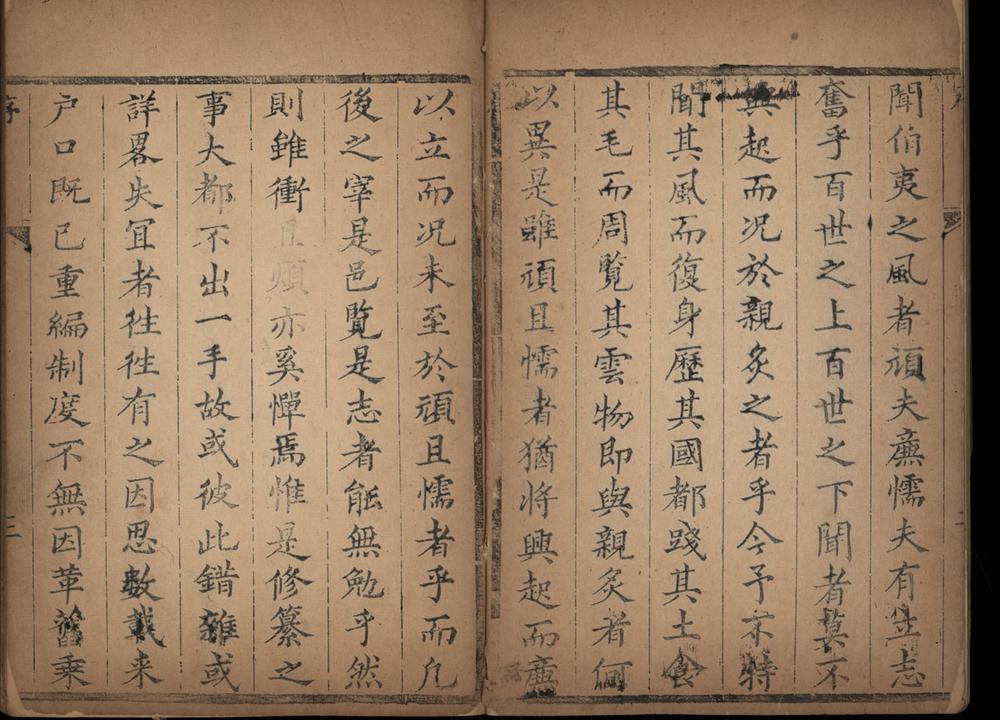 聞伯夷之風者頑夫㢘懦夫有立志
奮乎百世之上百世之下聞者莫不
興起而况於親炙之者乎今予不特
聞其風而復身歷其國都踐其土食
其毛而周覽其雲物即與親炙者何
以異是雖頑且懦者猶將興起而㢘
以立而况未至於頑且懦者乎而凡
後之宰是邑覽是志者能無勉乎然
則雖衝且煩亦奚憚焉惟是修纂之
事大都不出一手故或彼此錯雜或
詳畧失冝者徃徃有之因思數載来
户口既已重編制度不無因革舊乘
序
三